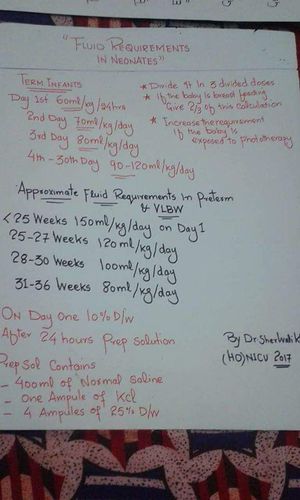 "FLUID REQUIREMENTS
IN NEONATES"
TERM INFANTS
Day 1st 60ml/kg/24hrs
2nd Day 70ml/kg/day
3rd Day 80ml/kg/day
4th - 30th Day 90-120ml/kg/day
* Divide it In 3 divided doses
* If the baby is breast feeding
Give 2/3 of this calculation
* Increase the requirement
If the baby is
exposed to phototherapy
Approximate Fluid Requirements In Preterm
& VLBW
<25 Weeks 150ml/kg/day on Day 1
25-27 Weeks 120ml/kg/day
28-30 Weeks 100ml/kg/day
31-36 Weeks 80ml/kg/day
ON Day One 10% D/W
After 24 hours Prep Solution
Prep Sol Contains
- 400ml of Normal Saline
- One Ampule of Kcl
- 4 Ampules of 25% D/W
By Dr.
(HO) NICU 2017